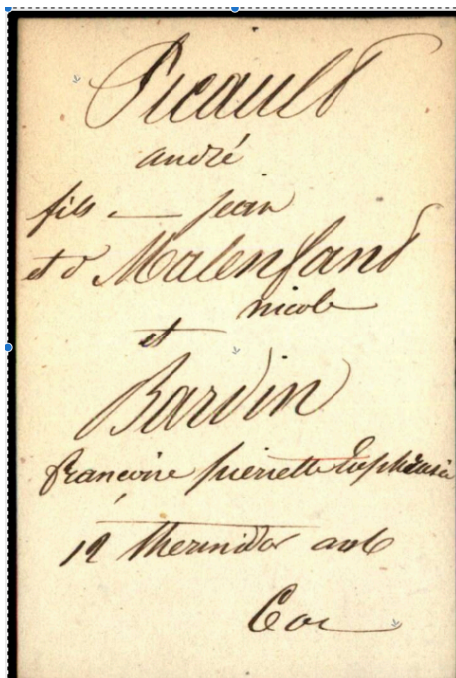 Picault
andré
fils — jean
et d Malenfant
nicole
et
Bardin
françoise pierrette Euphrasie
19 thermidor an 6